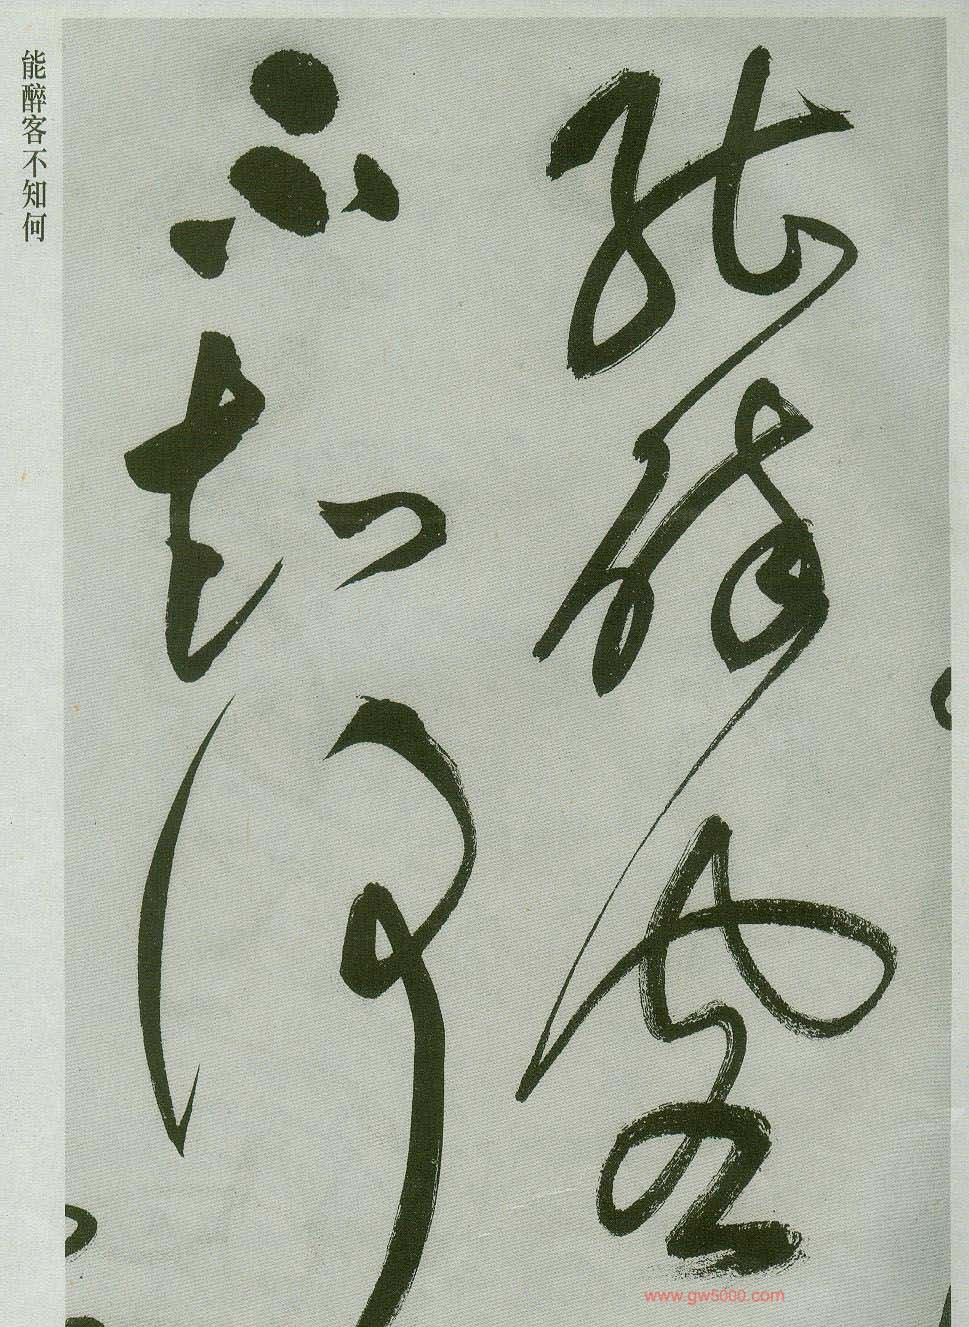 能醉客
不知何
能醉客不知何
www.gw5000.com